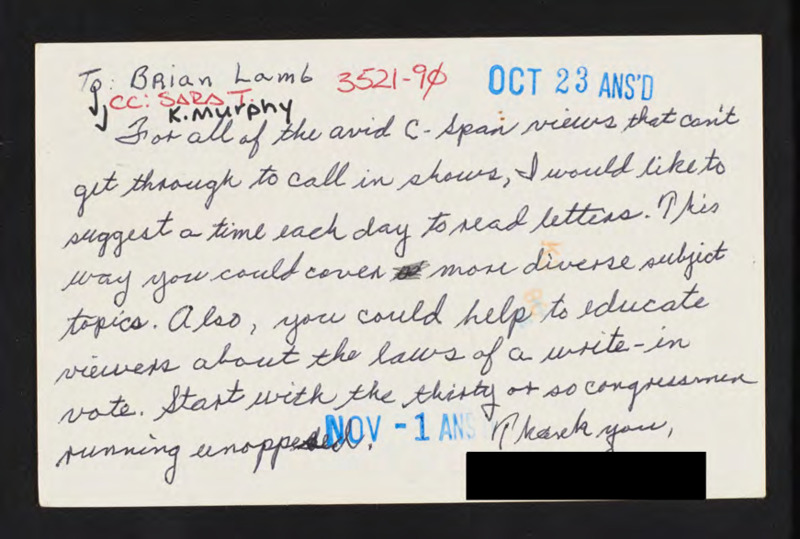 To: Brian Lamb 3521-90 OCT 23 ANS'D
CC: SARA T.
K. Murphy
For all of the avid C-Span views that can't
get through to call in shows, I would like to
suggest a time each day to read letters. This
way you could cover more diverse subject
topics. Also, you could help to educate
viewers about the laws of a write-in
vote. Start with the thirty or so congressmen
running unopposed. NOV -1 ANS
Thank you,